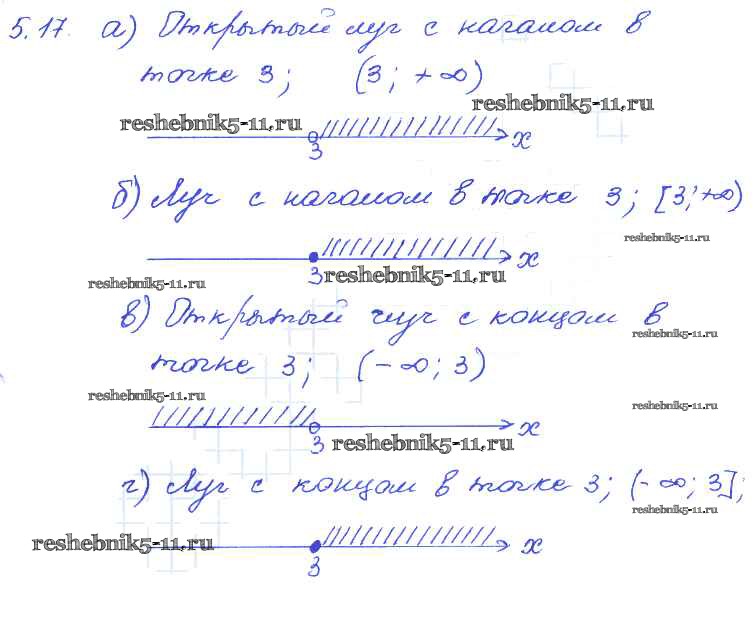 5.17. а) Открытый луч с началом в
точке 3; (3; +∞)
reshebnik5-11.ru
reshebnik5-11.ru
3
x
б) Луч с началом в точке 3; [3; +∞)
reshebnik5-11.ru
reshebnik5-11.ru
3
reshebnik5-11.ru
x
в) Открытый луч с концом в
reshebnik5-11.ru
точке 3; (-∞; 3)
reshebnik5-11.ru
reshebnik5-11.ru
3
reshebnik5-11.ru
x
г) Луч с концом в точке 3; (-∞; 3];
reshebnik5-11.ru
reshebnik5-11.ru
3
x